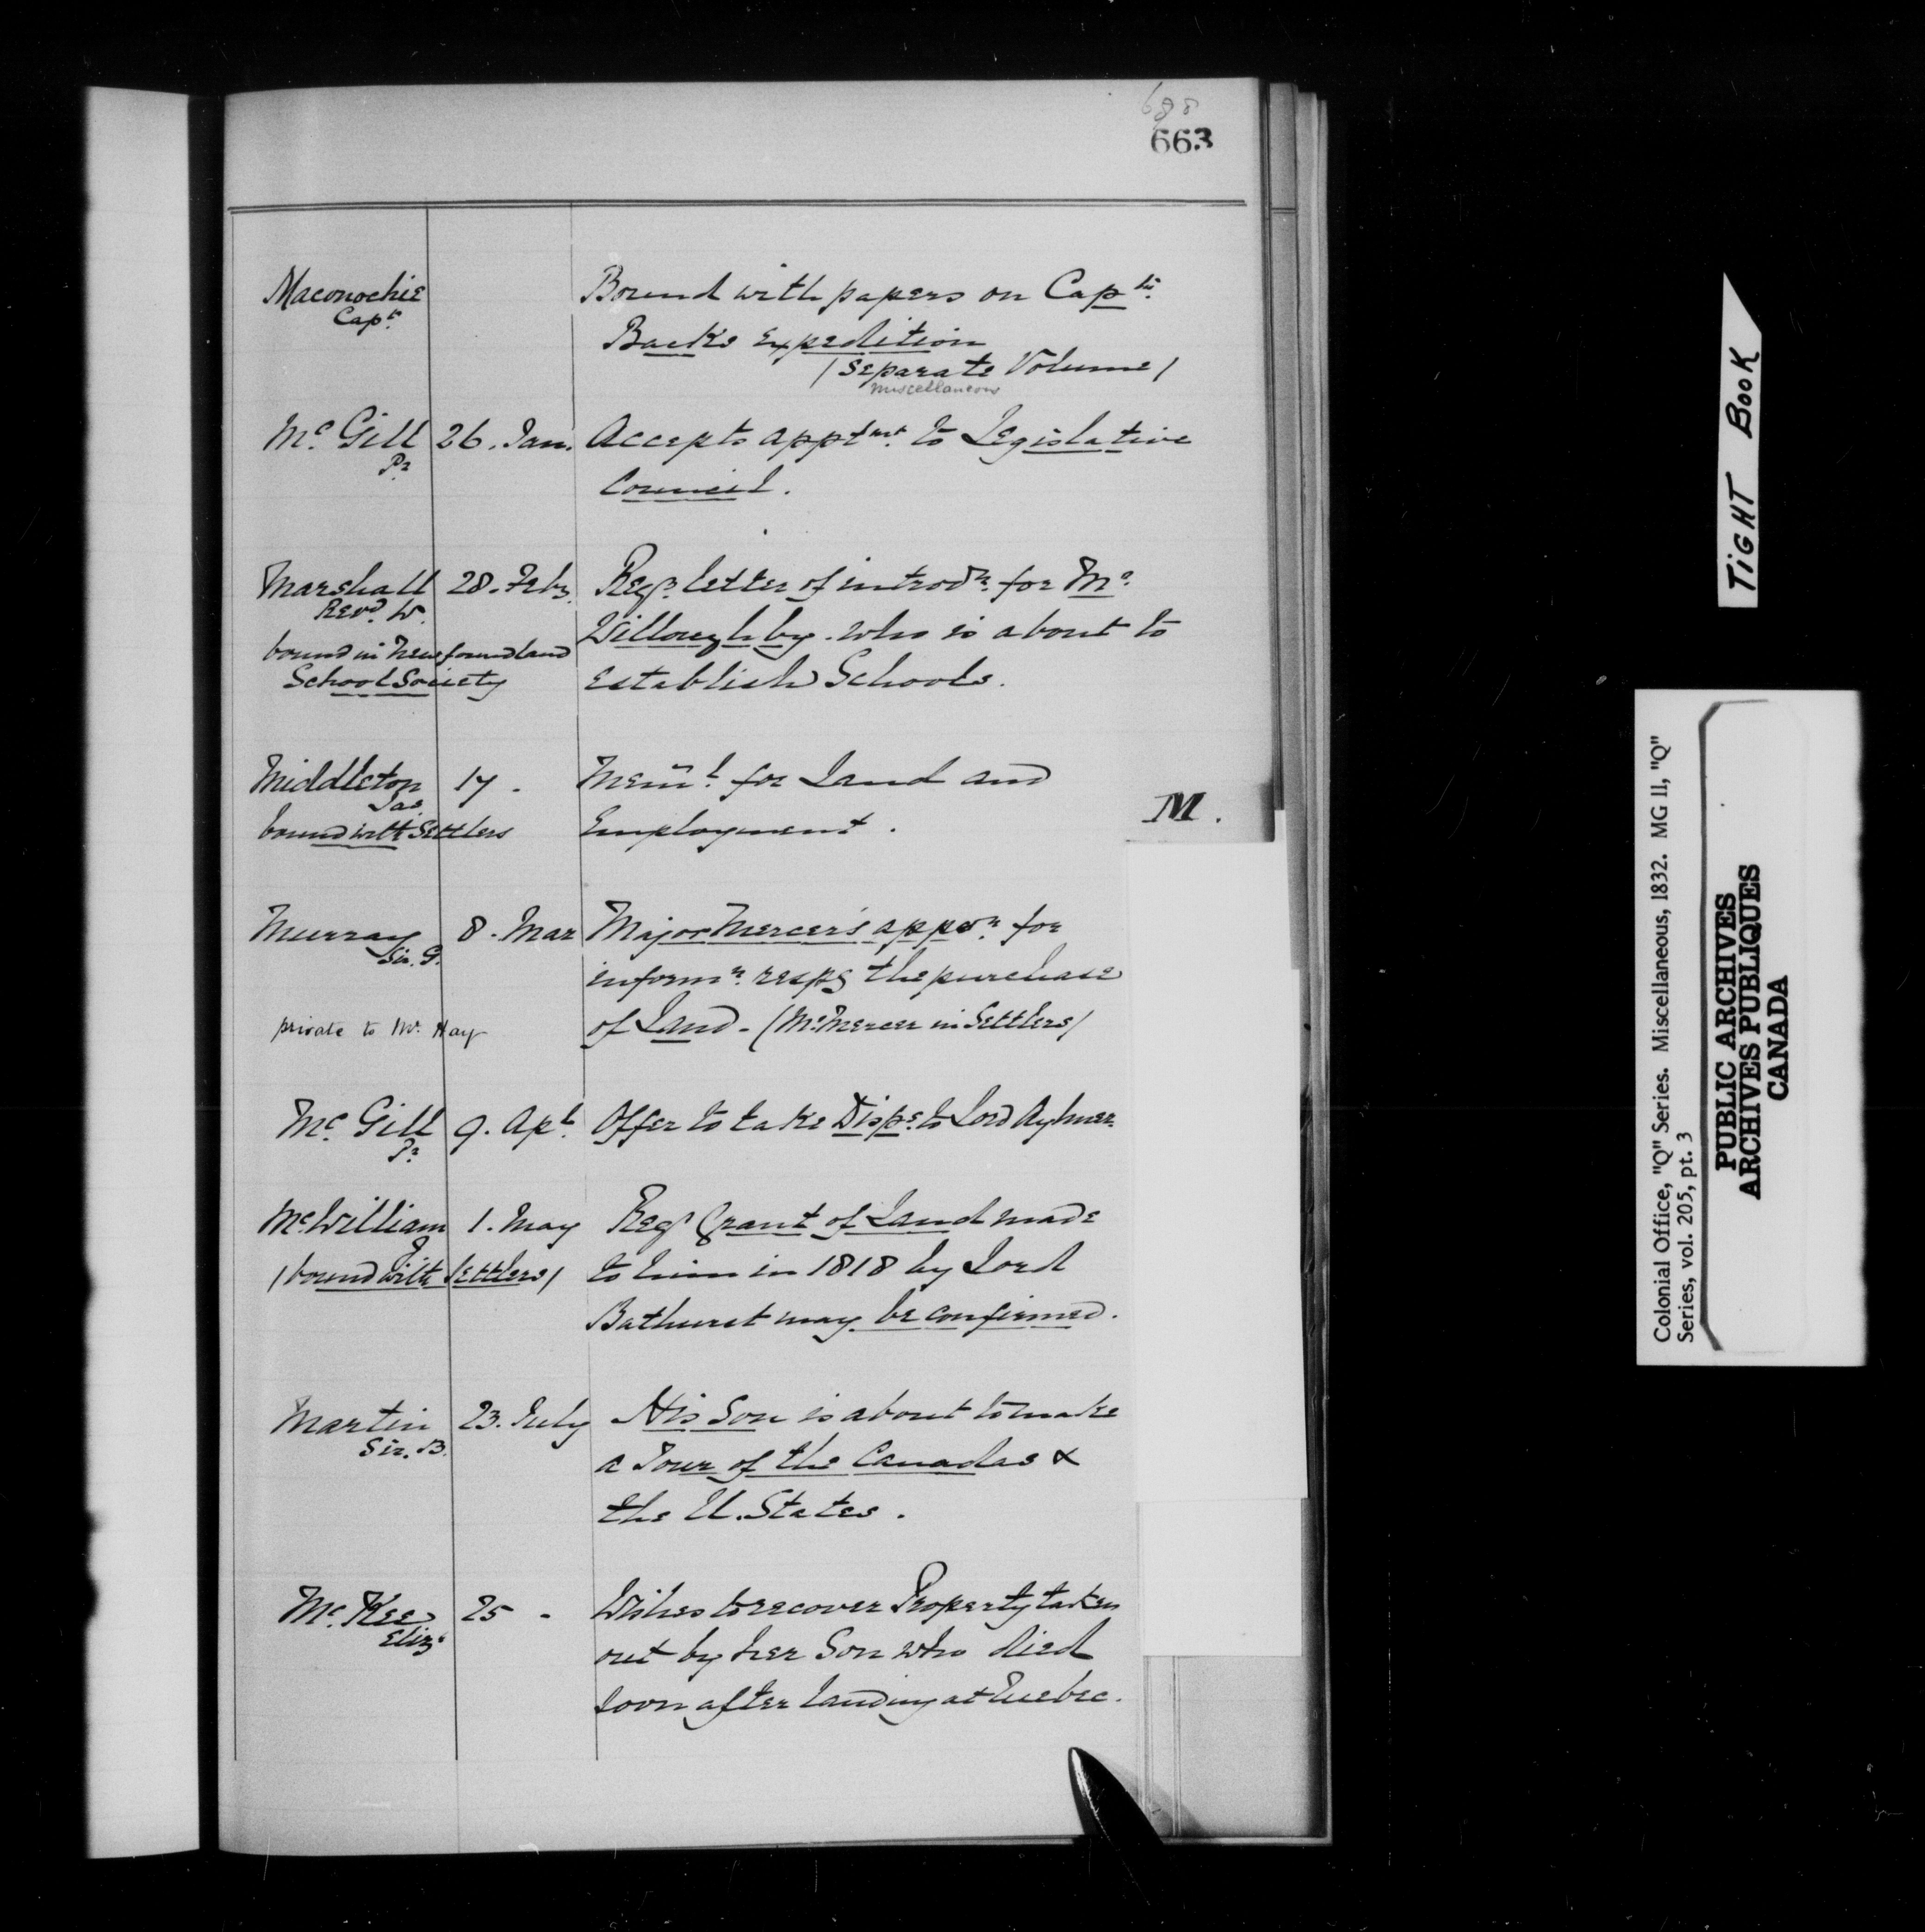 698
663
Maconochie Bound with papers on Capt.
Capt.
Backs Expedition
/ Separate Volume /
Miscellaneous
Mc. Gill 26. Jan. Accepts apptmt. to Legislative
Pr.
Council.
Marshall 28. Feby. Reqg. letter of introdn. for Mr.
Revd. W.
Willoughby. who is about to
bound in Newfoundland
School Society establish Schools.
Middleton 17 - Meml. for Land and
Jas
bound with Settlers Employment.
M.
Murray 8. Mar Major Mercer's appn. for
Sir. G.
informn. respg the purchase
private to Mr. Hay of Land - (Mr. Mercer in Settlers/
Mc. Gill 9. Apl. Offer to take Disps. to Lord Aylmer.
Pr.
Mc. William 1. May Reqs Grant of Land made
J
/ bound with Settlers / to him in 1818 by Lord
Bathurst may be confirmed.
Martin 23. July His Son is about to make
Sir. B.
a Tour of the Canadas &
the U. States.
Mc. Kee 25 - Wishes to recover Property taken
Eliz.
out by her Son who died
soon after landing at Quebec.
TIGHT BOOK
Colonial Office, "Q" Series. Miscellaneous, 1832. MG 11, "Q"
Series, vol. 205, pt. 3
PUBLIC ARCHIVES
ARCHIVES PUBLIQUES
CANADA